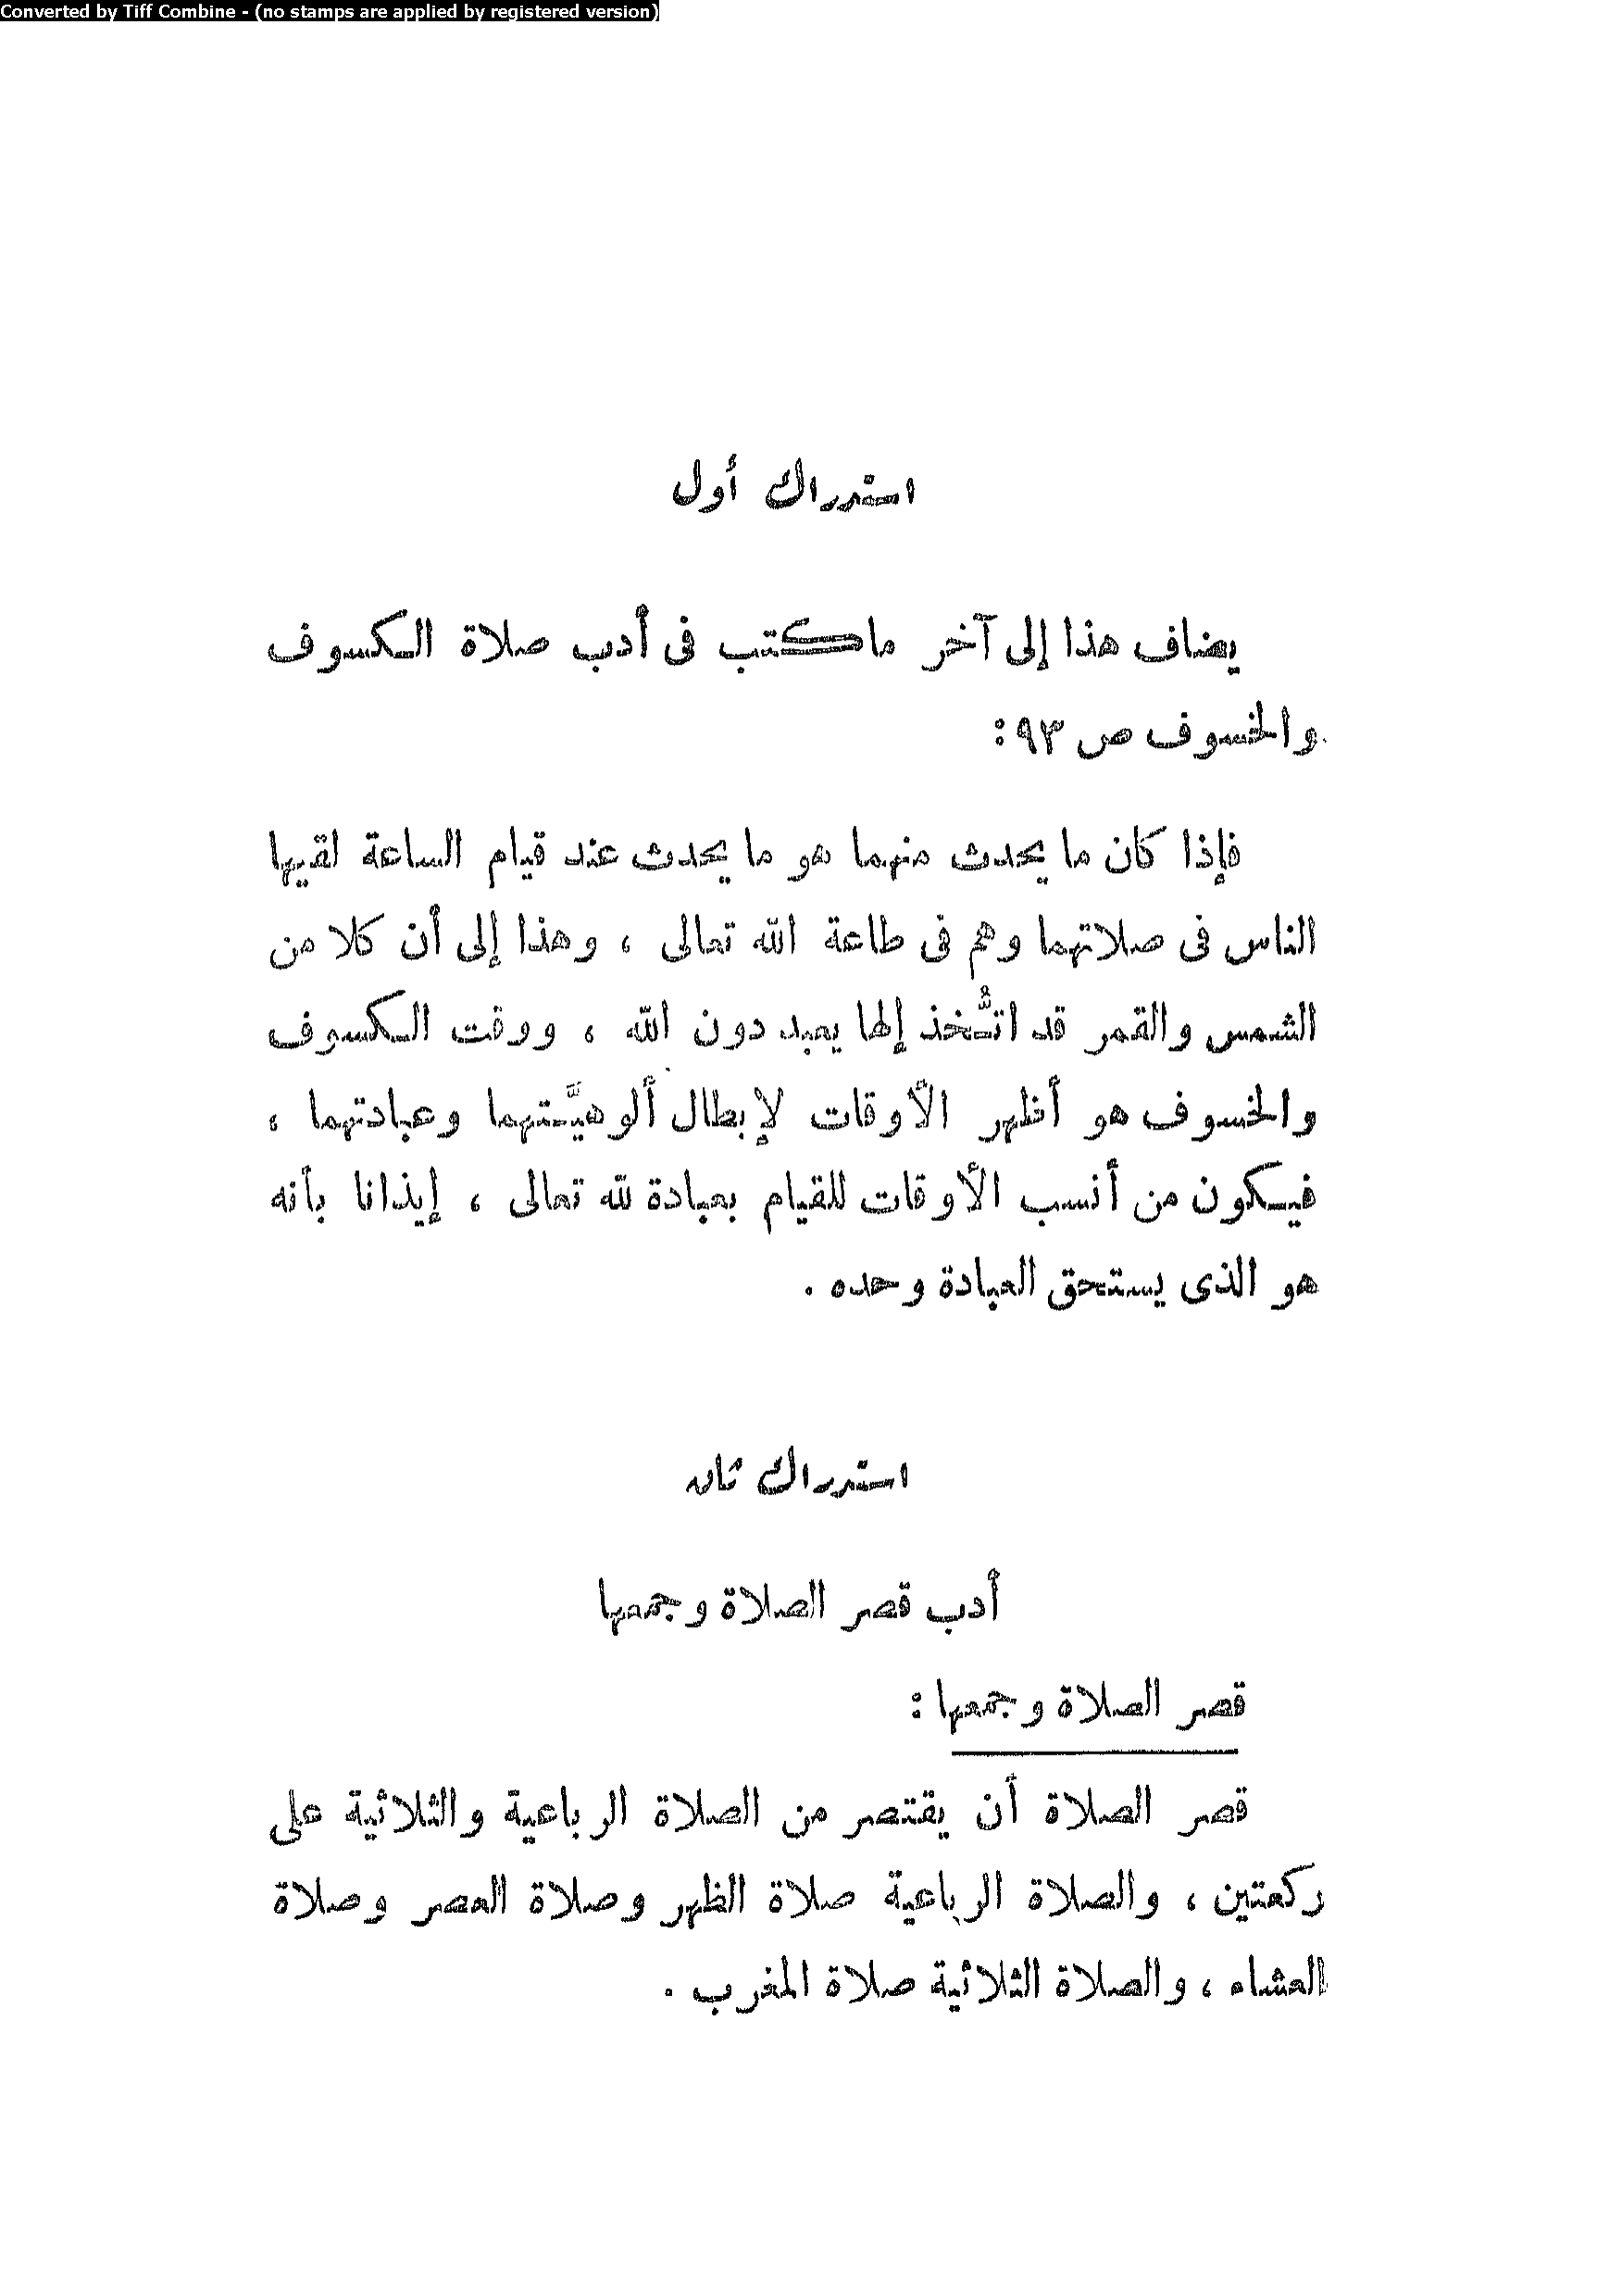 Converted by Tiff Combine - (no stamps are applied by registered version)
استدراك أول
يضاف هذا إلى آخر ماكتب فى أدب صلاة الكسوف
والخسوف ص ٩٣:
فإذا كان ما يحدث منهما هو ما يحدث عند قيام الساعة لقيها
الناس فى صلاتهما وهم فى طاعة الله تعالى ، وهذا إلى أن كلا من
الشمس والقمر قد اتُّخذ إلها يعبد دون الله ، ووقت الكسوف
والخسوف هو أظهر الأوقات لإبطال ألوهيَّتهما وعبادتهما ،
فيكون من أنسب الأوقات للقيام بعبادة لله تعالى ، إيذانا بأنه
هو الذى يستحق العبادة وحده .
استدراك ثان
أدب قصر الصلاة وجمعها
قصر الصلاة وجمعها :
قصر الصلاة أن يقتصر من الصلاة الرباعية والثلاثية على
ركعتين ، والصلاة الرباعية صلاة الظهر وصلاة العصر وصلاة
العشاء ، والصلاة الثلاثية صلاة المغرب .